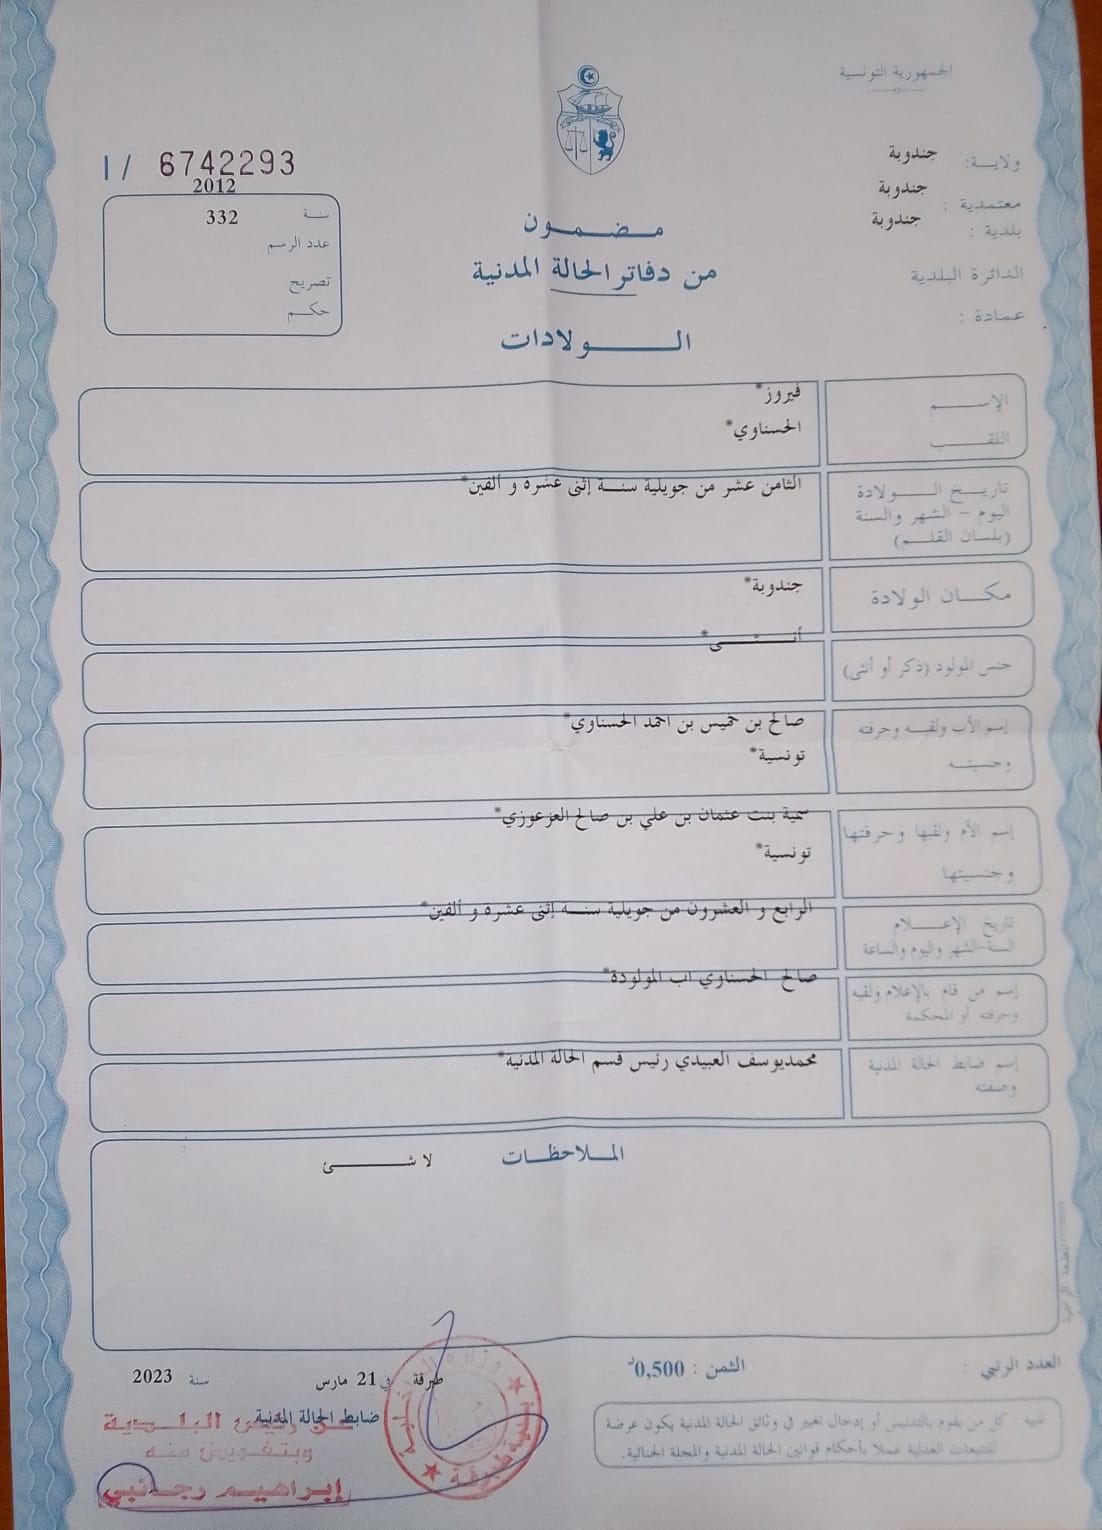 الجمهورية التونسية
ولاية: جندوبة
معتمدية : جندوبة
بلدية : جندوبة
الدائرة البلدية
عمادة :
I/ 6742293
2012
سنة
332
عدد الرسم
تصريح
حكم
مضمون
من دفاتر الحالة المدنية
الولادات
الإسم
فيروز*
اللقب
الحسناوي*
تاريخ الولادة
اليوم - الشهر والسنة
(بلسان القلم)
الثامن عشر من جويلية سنة إثنى عشرة و ألفين*
مكان الولادة
جندوبة*
جنس المولود (ذكر أو أنثى)
أنثى*
إسم الأب ولقبه وحرفته
وجنسيته
صالح بن خميس بن احمد الحسناوي*
تونسية*
إسم الأم ولقبها وحرفتها
وجنسيتها
سمية بنت عثمان بن علي بن صالح العزعوزي*
تونسية*
تاريخ الإعلام
السنة-الشهر واليوم والساعة
الرابع و العشرون من جويلية سنه إثنى عشرة و ألفين*
إسم من قام بالإعلام ولقبه
وحرفته أو المحكمة
صالح الحسناوي اب المولودة*
إسم ضابط الحالة المدنية
وصفته
محمديوسف العبيدي رئيس قسم الحالة المدنية*
الملاحظات
لا شئ
العدد الرتبي :
الثمن : 0,500د
طبرقة في 21 مارس سنة 2023
ضابط الحالة المدنية
عن رئيس البلدية
وبتفويض منه
إبراهيم رجائبي
وزارة الداخلية
بلدية طبرقة
تنبيه كل من يقوم بالتدليس أو إدخال تغيير في وثائق الحالة المدنية يكون عرضة
للتتبعات العدلية عملا بأحكام قوانين الحالة المدنية والمجلة الجنائية.